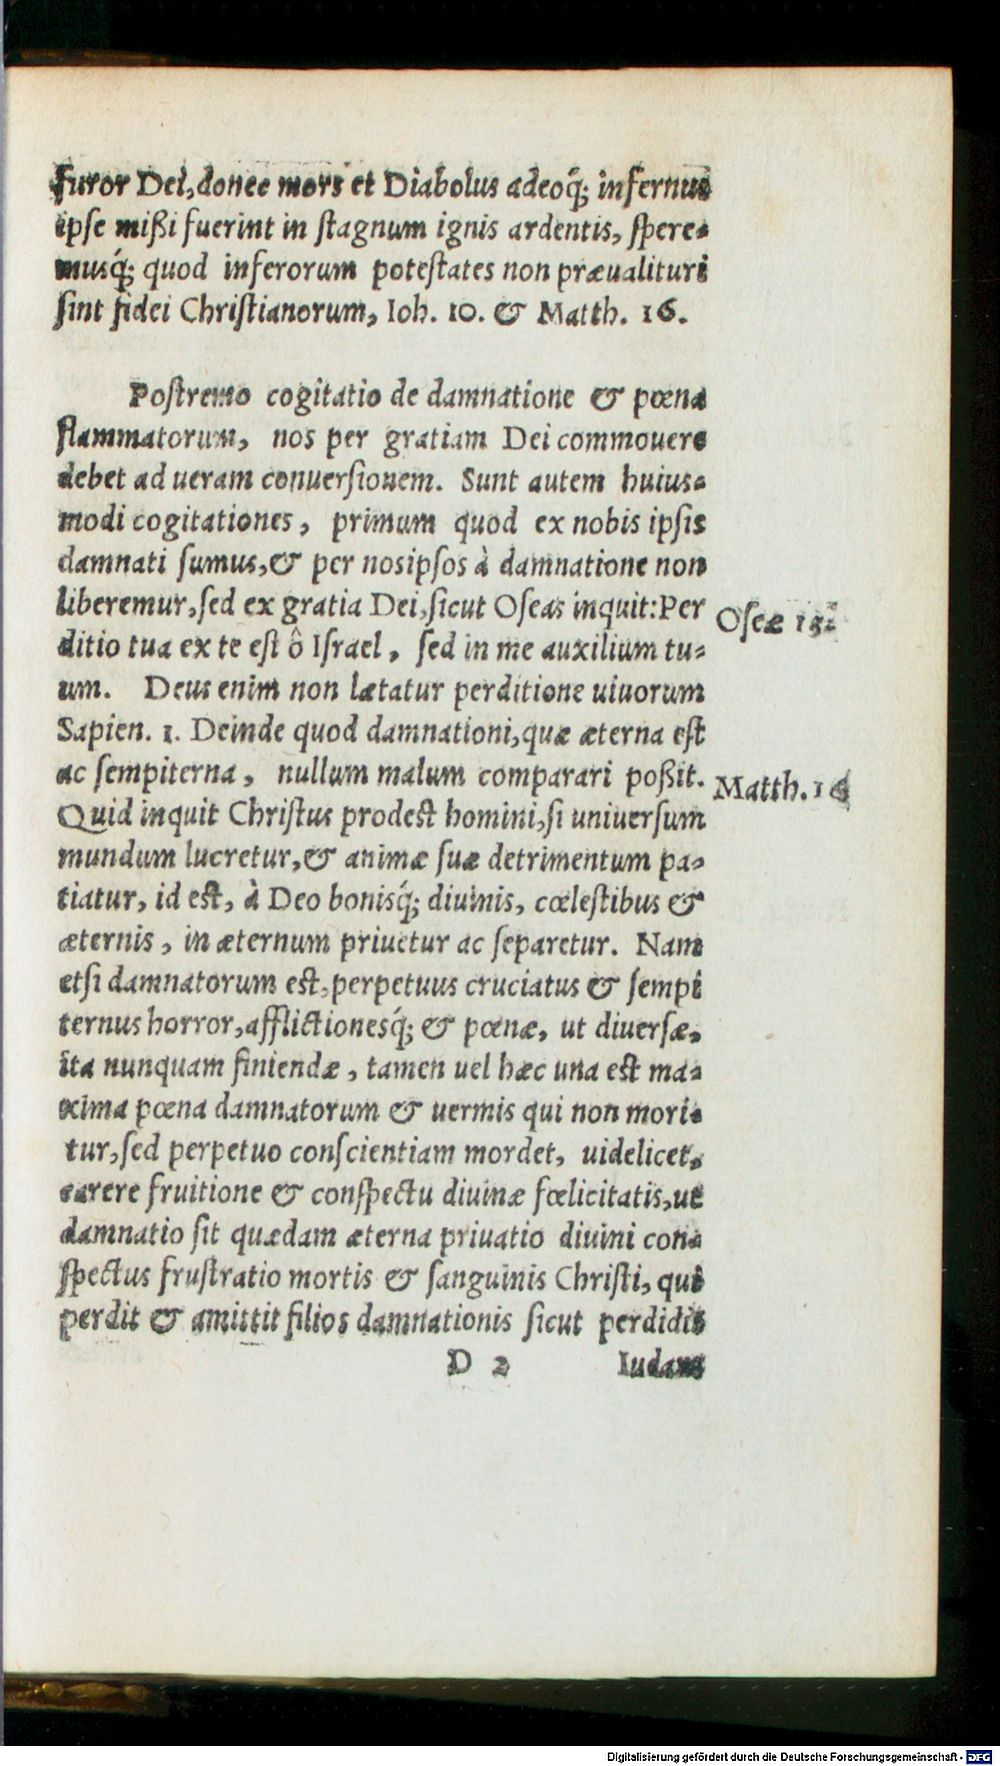 furor Dei, donec mors et Diabolus adeoq́; infernus
ipse mißi fuerint in ſtagnum ignis ardentis, ſpere-
musq́; quod inferorum poteſtates non præualituri
ſint fidei Chriſtianorum, Ioh. 10. & Matth. 16.
Poſtremo cogitatio de damnatione & pœna
flammatorum, nos per gratiam Dei commouere
debet ad ueram conuerſionem. Sunt autem huius-
modi cogitationes, primum quod ex nobis ipſis
damnati ſumus, & per nosipſos à damnatione non
liberemur, ſed ex gratia Dei, ſicut Oſeas inquit: Per
Oſeæ 13.
ditio tua ex te eſt ô Iſrael, ſed in me auxilium tu-
um. Deus enim non lætatur perditione uiuorum
Sapien. 1. Deinde quod damnationi, quæ æterna eſt
ac ſempiterna, nullum malum comparari poßit.
Matth. 16
Quid inquit Chriſtus prodeſt homini, ſi uniuerſum
mundum lucretur, & animæ ſuæ detrimentum pa-
tiatur, id eſt, à Deo bonisq́; diuinis, cœleſtibus &
æternis, in æternum priuetur ac ſeparetur. Nam
etſi damnatorum eſt, perpetuus cruciatus & ſempi
ternus horror, afflictionesq́; & pœnæ, ut diuerſæ,
ita nunquam finiendæ, tamen uel hæc una eſt ma-
xima pœna damnatorum & uermis qui non mori-
tur, ſed perpetuo conſcientiam mordet, uidelicet,
carere fruitione & conſpectu diuinæ fœlicitatis, ut
damnatio ſit quædam æterna priuatio diuini con-
ſpectus fruſtratio mortis & ſanguinis Chriſti, qui
perdit & amittit filios damnationis ſicut perdidit
D 2 Iudam
Digitalisierung gefördert durch die Deutsche Forschungsgemeinschaft - DFG